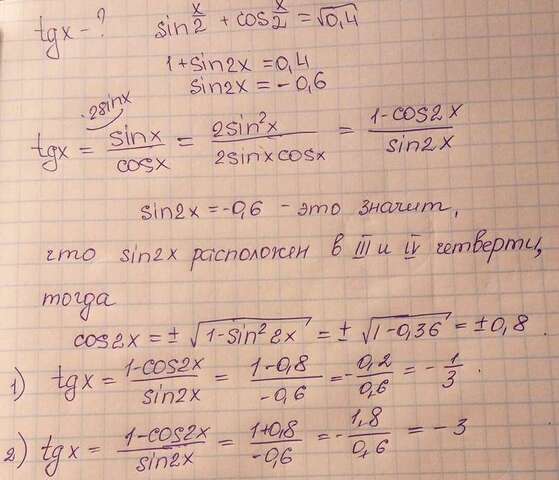 tgx - ? sin x/2 + cos x/2 = √0,4
1 + sin2x = 0,4
sin2x = -0,6
·2sinx
tgx = sinx/cosx = 2sin²x/2sinxcosx = 1-cos2x/sin2x
sin2x = -0,6 - это значит,
что sin2x расположен в III и IV четверти,
тогда
cos2x = ± √1-sin²2x = ± √1-0,36 = ±0,8.
1) tgx = 1-cos2x/sin2x = 1-0,8/-0,6 = -0,2/0,6 = -1/3.
2) tgx = 1-cos2x/sin2x = 1+0,8/-0,6 = -1,8/0,6 = -3